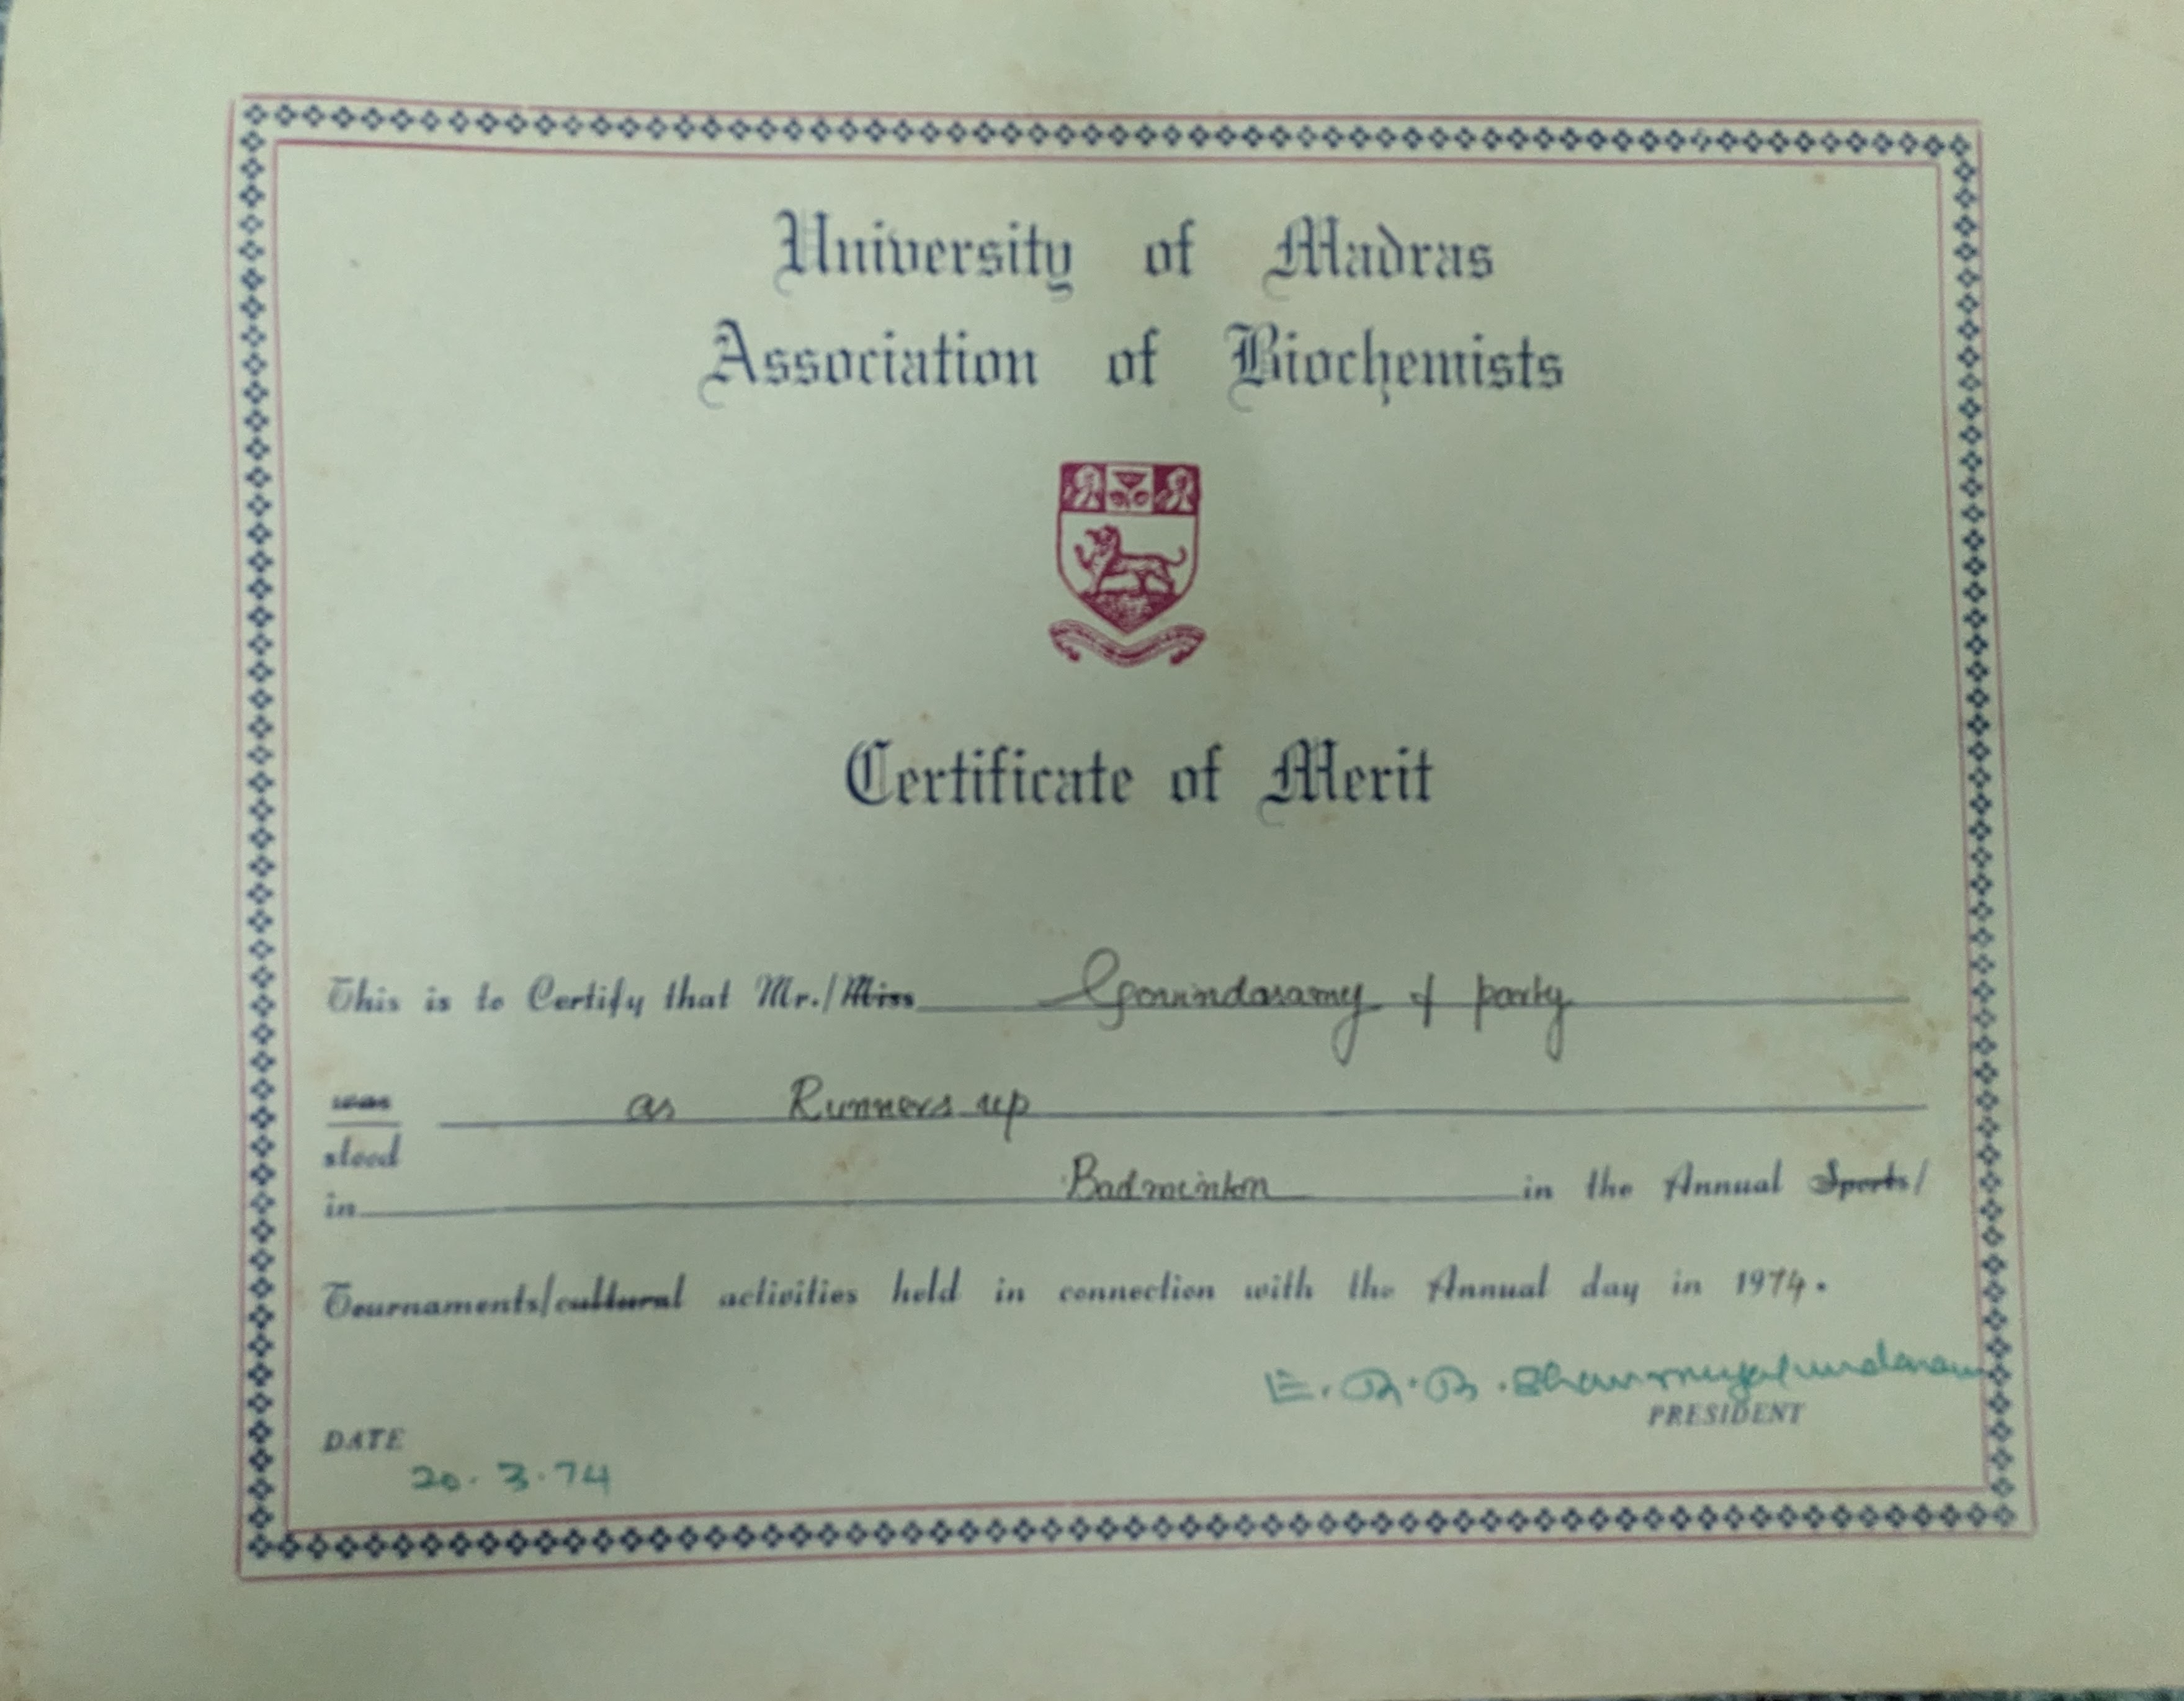 University of Madras
Association of Biochemists
Certificate of Merit
This is to Certify that Mr./Miss Govindasamy & party
was as Runners up
stood
in Badminton in the Annual Sports/
Tournaments/cultural activities held in connection with the Annual day in 1974.
E. R. B. Shanmugasundaram
PRESIDENT
DATE
20.3.74